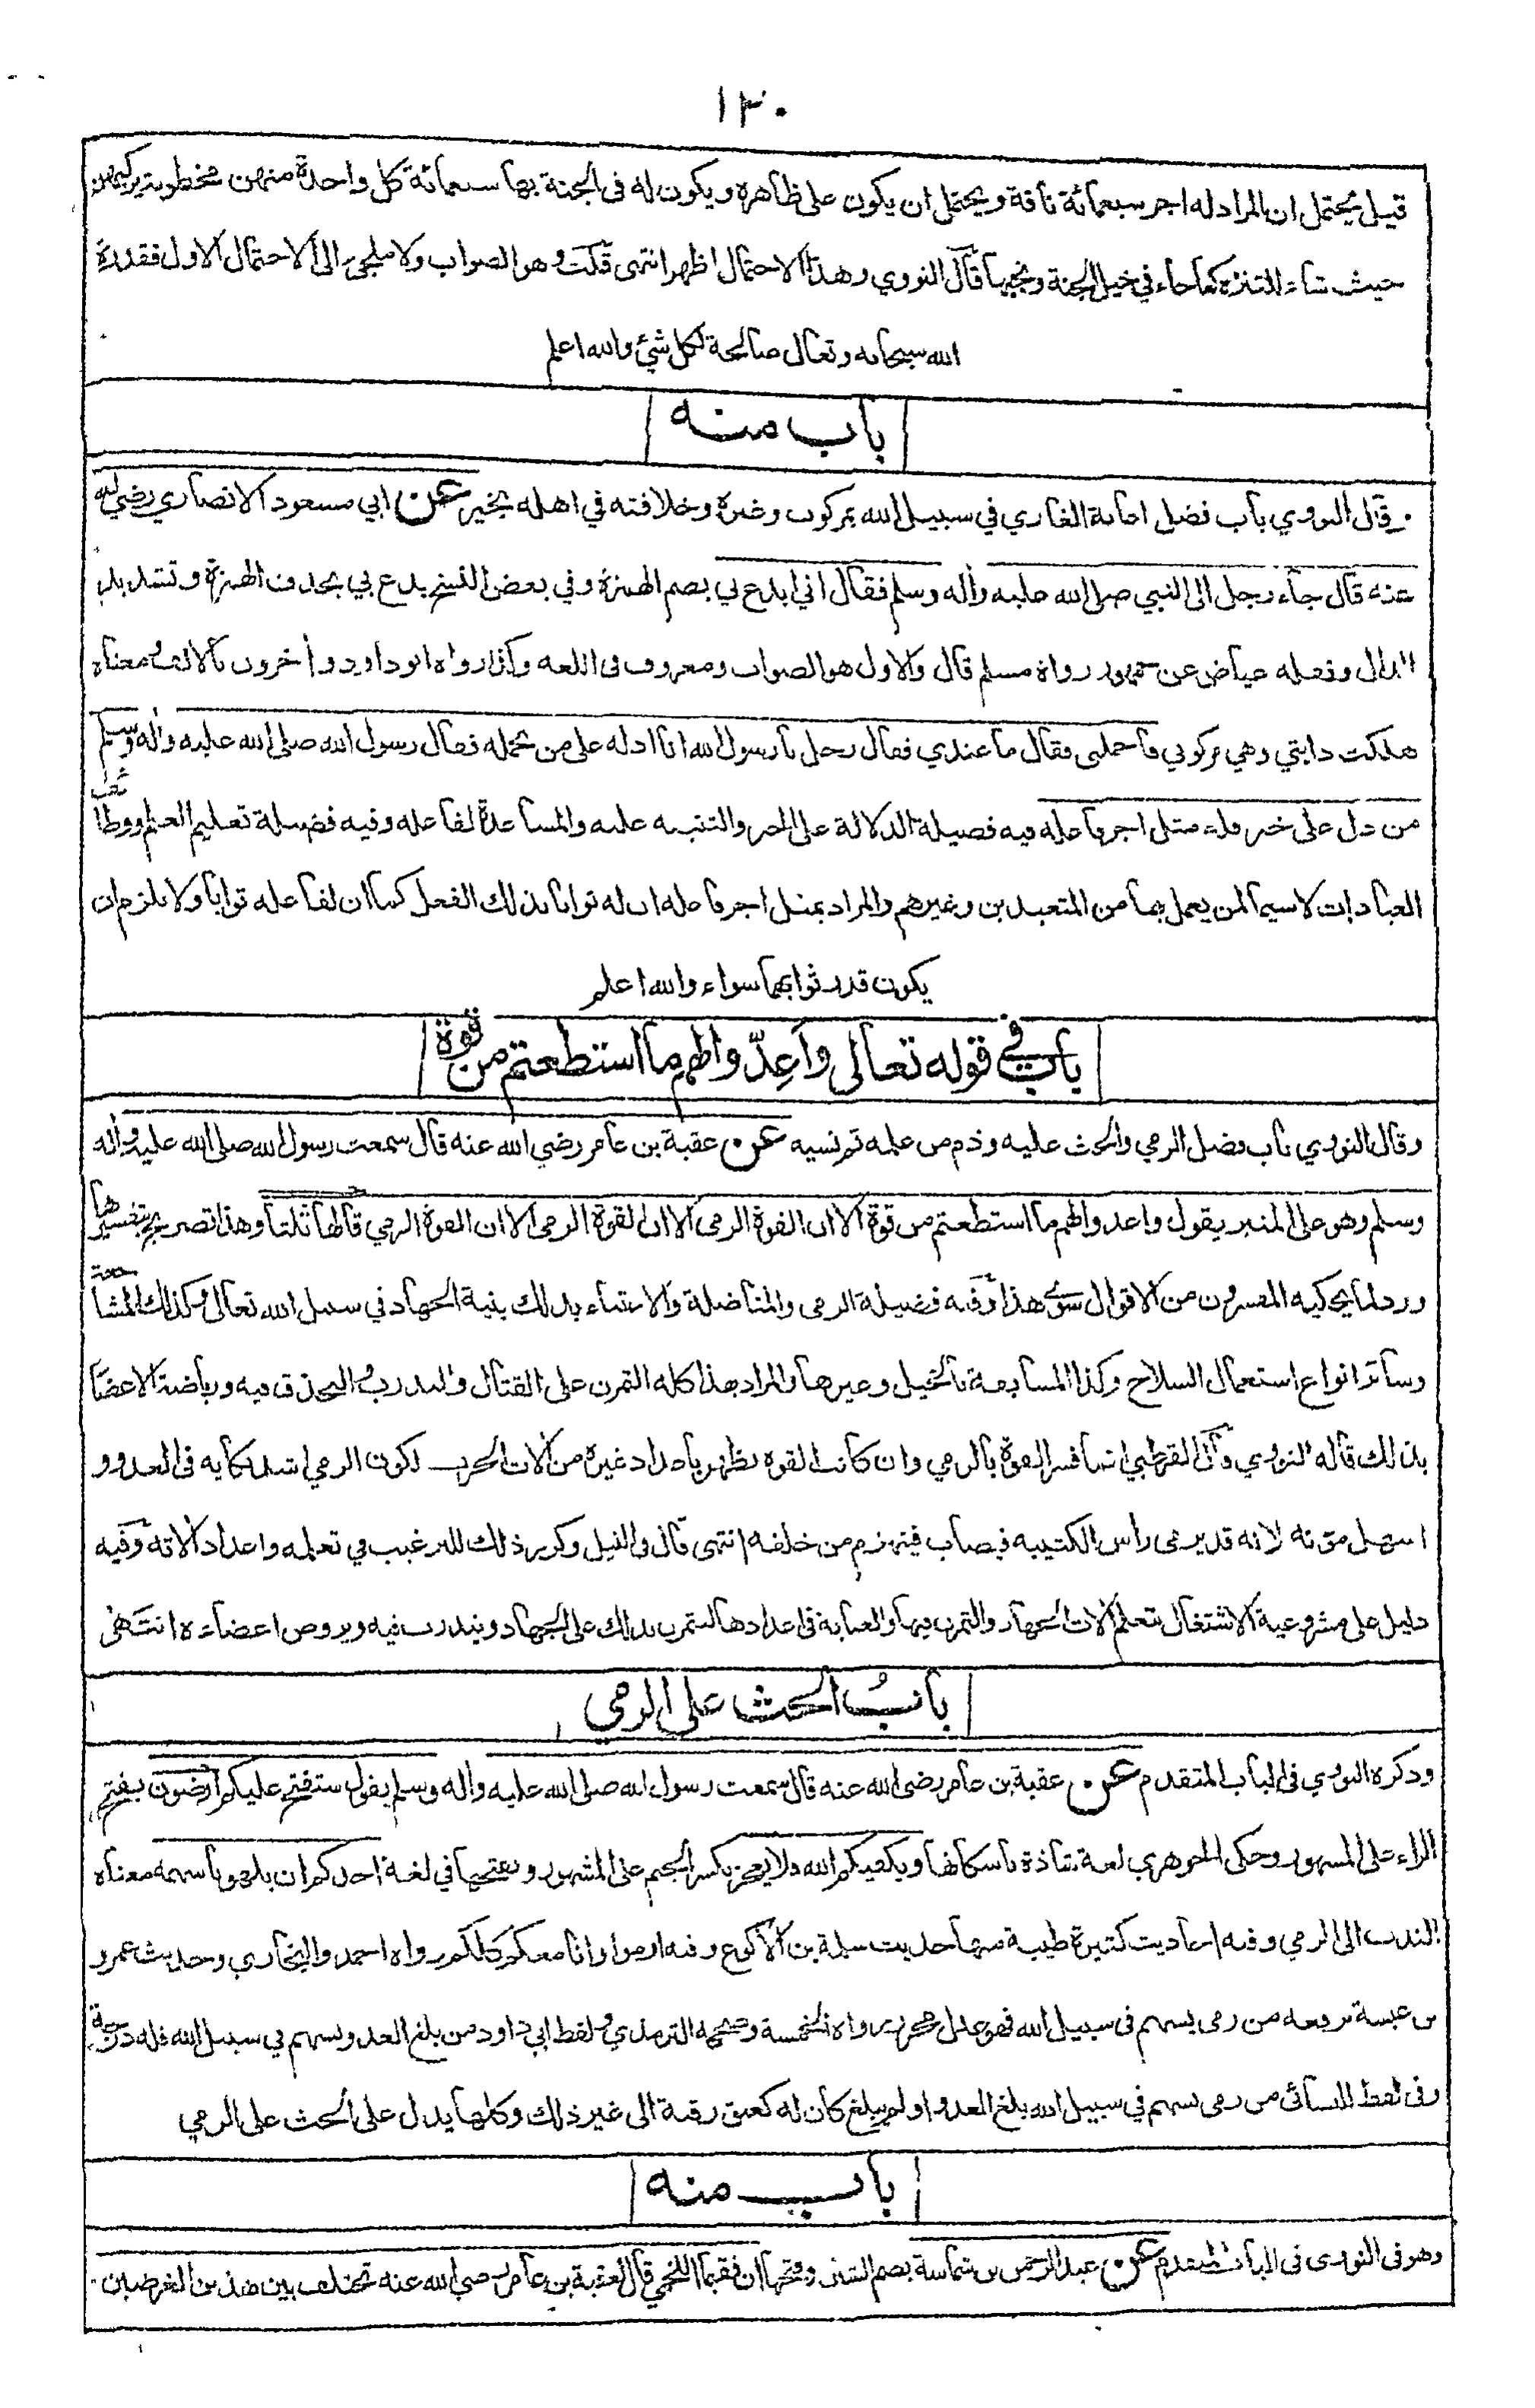 ١٣٠
قيل يحتمل ان المراد له اجر سبعمائة ناقة ويحتمل ان يكون على ظاهره ويكون له فى الجنة بها سبعمائة كل واحدة منهن مخطومة يركبهن
حيث شاء للتنزه كما جاء في خيل الجنة ونجبها قال النووي وهذا الاحتمال اظهر انتهى قلت وهو الصواب ولا ملجئ الى الاحتمال الاول فقدرة
الله سبحانه وتعالى صالحة لكل شئ والله اعلم
باب منه
وقال النووي باب فضل اعانة الغازي في سبيل الله بمركوب وغيره وخلافته في اهله بخير عن ابي مسعود الانصاري رضي الله
عنه قال جاء رجل الى النبي صلى الله عليه وأله وسلم فقال اني ابدع بي بضم الهمزة وفي بعض النسخ بدع بي بحذف الهمزة وتشديد
الدال ونقله عياض عن جمهور رواة مسلم قال والاول هو الصواب ومعروف فى اللغه وكذا رواه ابو داود وأخرون بالالف ومعناه
هلكت دابتي وهي مركوبي فاحملنى فقال ما عندي فقال رجل يا رسول الله انا ادله على من يحمله فقال رسول الله صلى الله عليه وأله وسلم
من دل على خير فله مثل اجر فاعله فيه فضيلة الدلالة على الخير والتنبيه عليه والمساعدة لفاعله وفيه فضيلة تعليم العلم ووظائف
العبادات لا سيما لمن يعمل بها من المتعبدين وغيرهم والمراد بمثل اجر فاعله ان له ثوابا بذلك الفعل كما ان لفاعله ثوابا ولا يلزم ان
يكون قدر ثوابهما سواء والله اعلم
باب في قوله تعالى وأعدّوا لهم ما استطعتم من قوة
وقال النووي باب فضل الرمي والحث عليه وذم من علمه ثم نسيه عن عقبة بن عامر رضي الله عنه قال سمعت رسول الله صلى الله عليه وأله
وسلم وهو على المنبر يقول واعدوا لهم ما استطعتم من قوة الا ان القوة الرمى الا ان القوة الرمى الا ان القوة الرمي قالها ثلثا وهذا تصريح بتفسيرها
ورد لما يحكيه المفسرون من الاقوال سوى هذا وفيه فضيلة الرمى والمناضلة والاعتناء بذلك بنية الجهاد في سبيل الله تعالى وكذلك المشاجعة
وسائر انواع استعمال السلاح وكذا المسابقة بالخيل وغيرها والمراد بهذا كله التمرن على القتال والتدرب والتحذق فيه ورياضة الاعضاء
بذلك قاله النووي وقال القرطبي انما فسر القوة بالرمي وان كانت القوة تظهر باعداد غيره من ألات الحرب لكون الرمي اشد نكاية فى العدو و
اسهل مؤنه لانه قد يرمى راس الكتيبه فيصاب فينهزم من خلفه انتهى قال فى النيل وكرر ذلك للترغيب في تعلمه واعداد ألاته وفيه
دليل على مشروعية الاشتغال بتعلم ألات الجهاد والتمرن فيها والعناية فى اعدادها ليتمرن بذلك على الجهاد ويتدرب فيه ويروض اعضاءه انتهى
باب الحث على الرمى
وذكره النووي فى الباب المتقدم عن عقبة بن عامر رضى الله عنه قال سمعت رسول الله صلى الله عليه وأله وسلم يقول ستفتح عليكم ارضون بفتح
الراء على المشهور وحكى الجوهري لغة شاذة باسكانها ويكفيكم الله فلا يعجز بكسر الجيم على المشهور وبفتحها في لغة احدكم ان يلهو باسهمه معناه
الندب الى الرمي وفيه احاديث كثيرة طيبة منها حديث سلمة بن الأكوع وفيه ارموا وانا معكم كلكم رواه احمد والبخاري وحديث عمرو
بن عبسة يرفعه من رمى بسهم فى سبيل الله فهو عدل محرر رواه الخمسة وصححه الترمذي ولفظ ابي داود من بلغ العدو بسهم في سبيل الله فله درجة
وفى لفظ للنسائى من رمى بسهم في سبيل الله بلغ العدو او لم يبلغ كان له كعتق رقبة الى غير ذلك وكلها يدل على الحث على الرمي
باب منه
وهو فى النووى فى الباب المتقدم عن عبد الرحمن بن شماسة بضم الشين وفتحها ان فقيما اللخمي قال لعقبة بن عامر رضي الله عنه تختلف بين هذين الغرضين